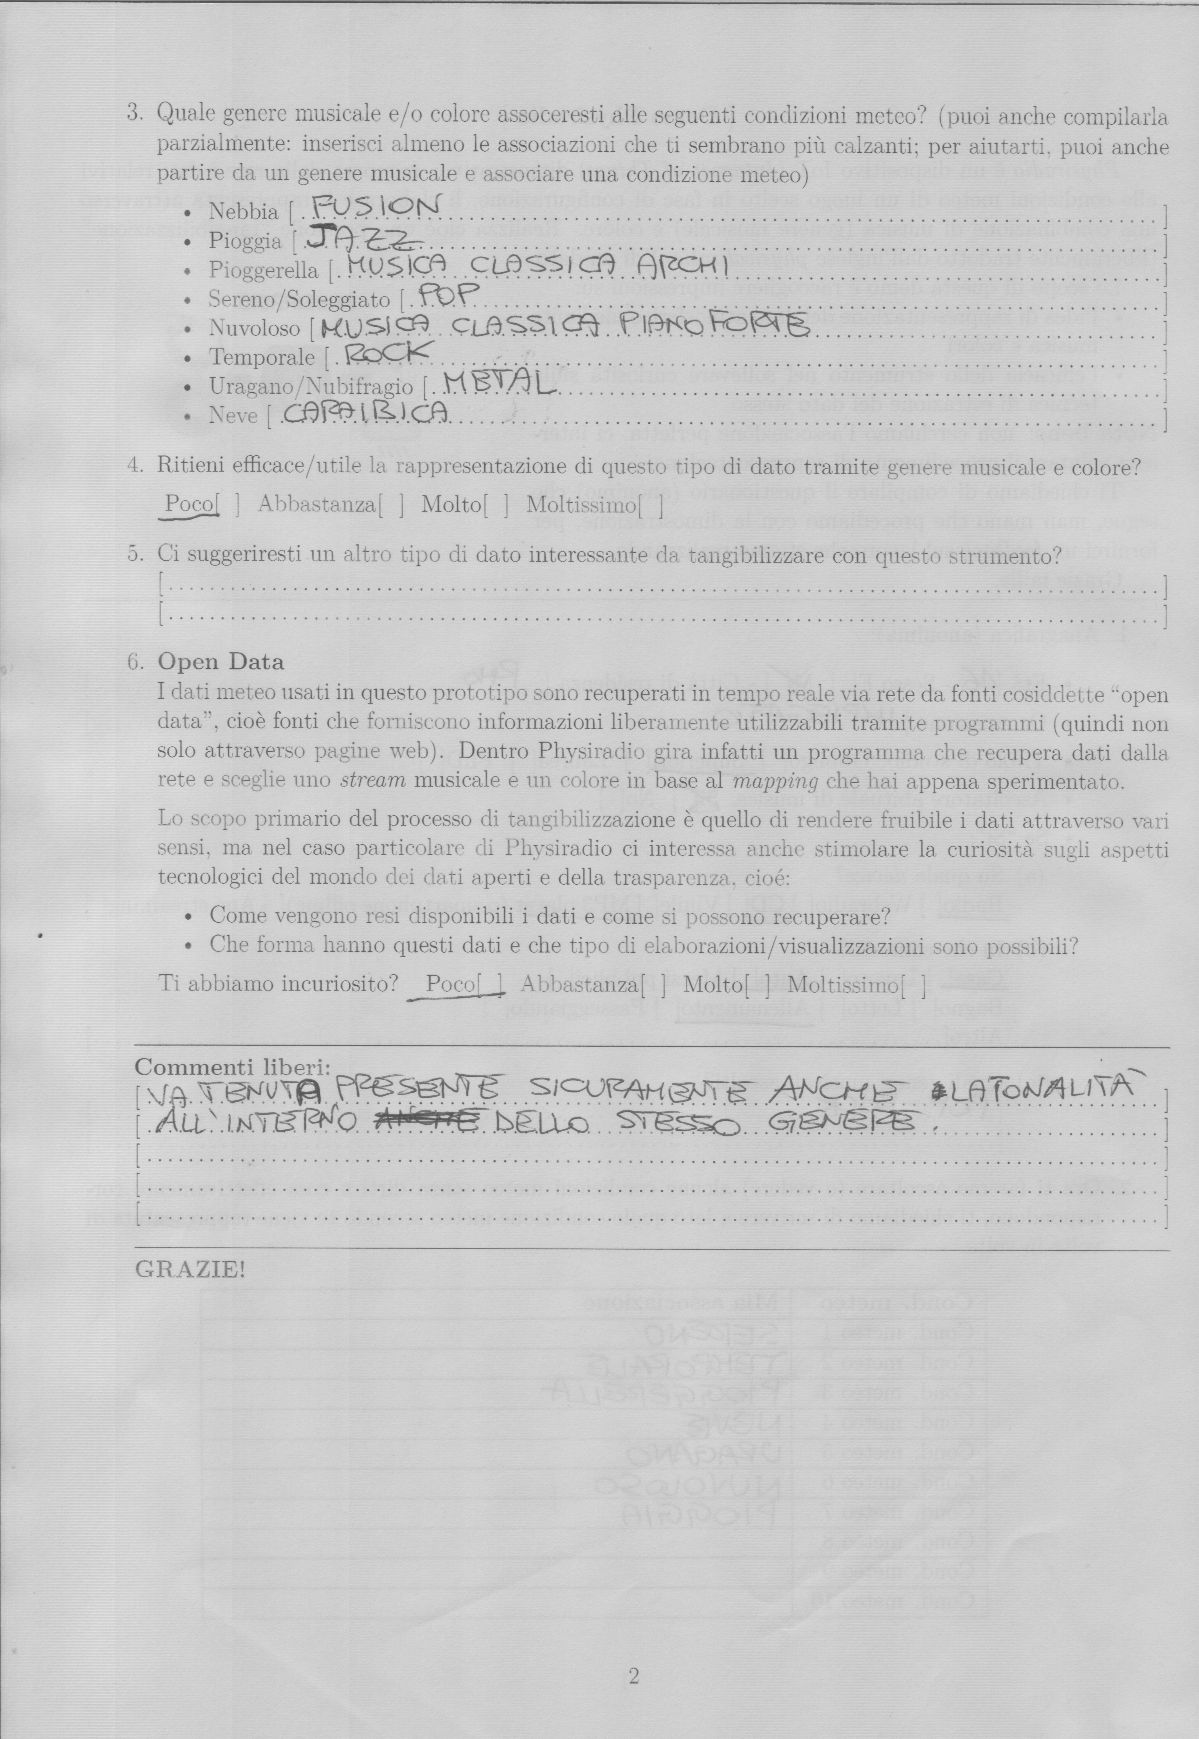 3. Quale genere musicale e/o colore assoceresti alle seguenti condizioni meteo? (puoi anche compilarla
parzialmente: inserisci almeno le associazioni che ti sembrano più calzanti; per aiutarti, puoi anche
partire da un genere musicale e associare una condizione meteo)
• Nebbia [ FUSION ]
• Pioggia [ JAZZ ]
• Pioggerella [ MUSICA CLASSICA ARCHI ]
• Sereno/Soleggiato [ POP ]
• Nuvoloso [ MUSICA CLASSICA PIANOFORTE ]
• Temporale [ ROCK ]
• Uragano/Nubifragio [ METAL ]
• Neve [ CARAIBICA ]
4. Ritieni efficace/utile la rappresentazione di questo tipo di dato tramite genere musicale e colore?
Poco[ ] Abbastanza[ ] Molto[ ] Moltissimo[ ]
5. Ci suggeriresti un altro tipo di dato interessante da tangibilizzare con questo strumento?
[ ]
[ ]
6. Open Data
I dati meteo usati in questo prototipo sono recuperati in tempo reale via rete da fonti cosiddette “open
data”, cioè fonti che forniscono informazioni liberamente utilizzabili tramite programmi (quindi non
solo attraverso pagine web). Dentro Physiradio gira infatti un programma che recupera dati dalla
rete e sceglie uno stream musicale e un colore in base al mapping che hai appena sperimentato.
Lo scopo primario del processo di tangibilizzazione è quello di rendere fruibile i dati attraverso vari
sensi, ma nel caso particolare di Physiradio ci interessa anche stimolare la curiosità sugli aspetti
tecnologici del mondo dei dati aperti e della trasparenza, cioé:
• Come vengono resi disponibili i dati e come si possono recuperare?
• Che forma hanno questi dati e che tipo di elaborazioni/visualizzazioni sono possibili?
Ti abbiamo incuriosito? Poco[ ] Abbastanza[ ] Molto[ ] Moltissimo[ ]
Commenti liberi:
[ VA TENUTA PRESENTE SICURAMENTE ANCHE LA TONALITÀ ]
[ ALL'INTERNO ANCHE DELLO STESSO GENERE. ]
[ ]
[ ]
[ ]
GRAZIE!
Cond. meteo Mia associazione
Cond. meteo 1 SERENO
Cond. meteo 2 TEMPORALE
Cond. meteo 3 PIOGGERELLA
Cond. meteo 4 NEVE
Cond. meteo 5 URAGANO
Cond. meteo 6 NUVOLOSO
Cond. meteo 7 PIOGGIA
Cond. meteo 8
Cond. meteo 9
Cond. meteo 10
2